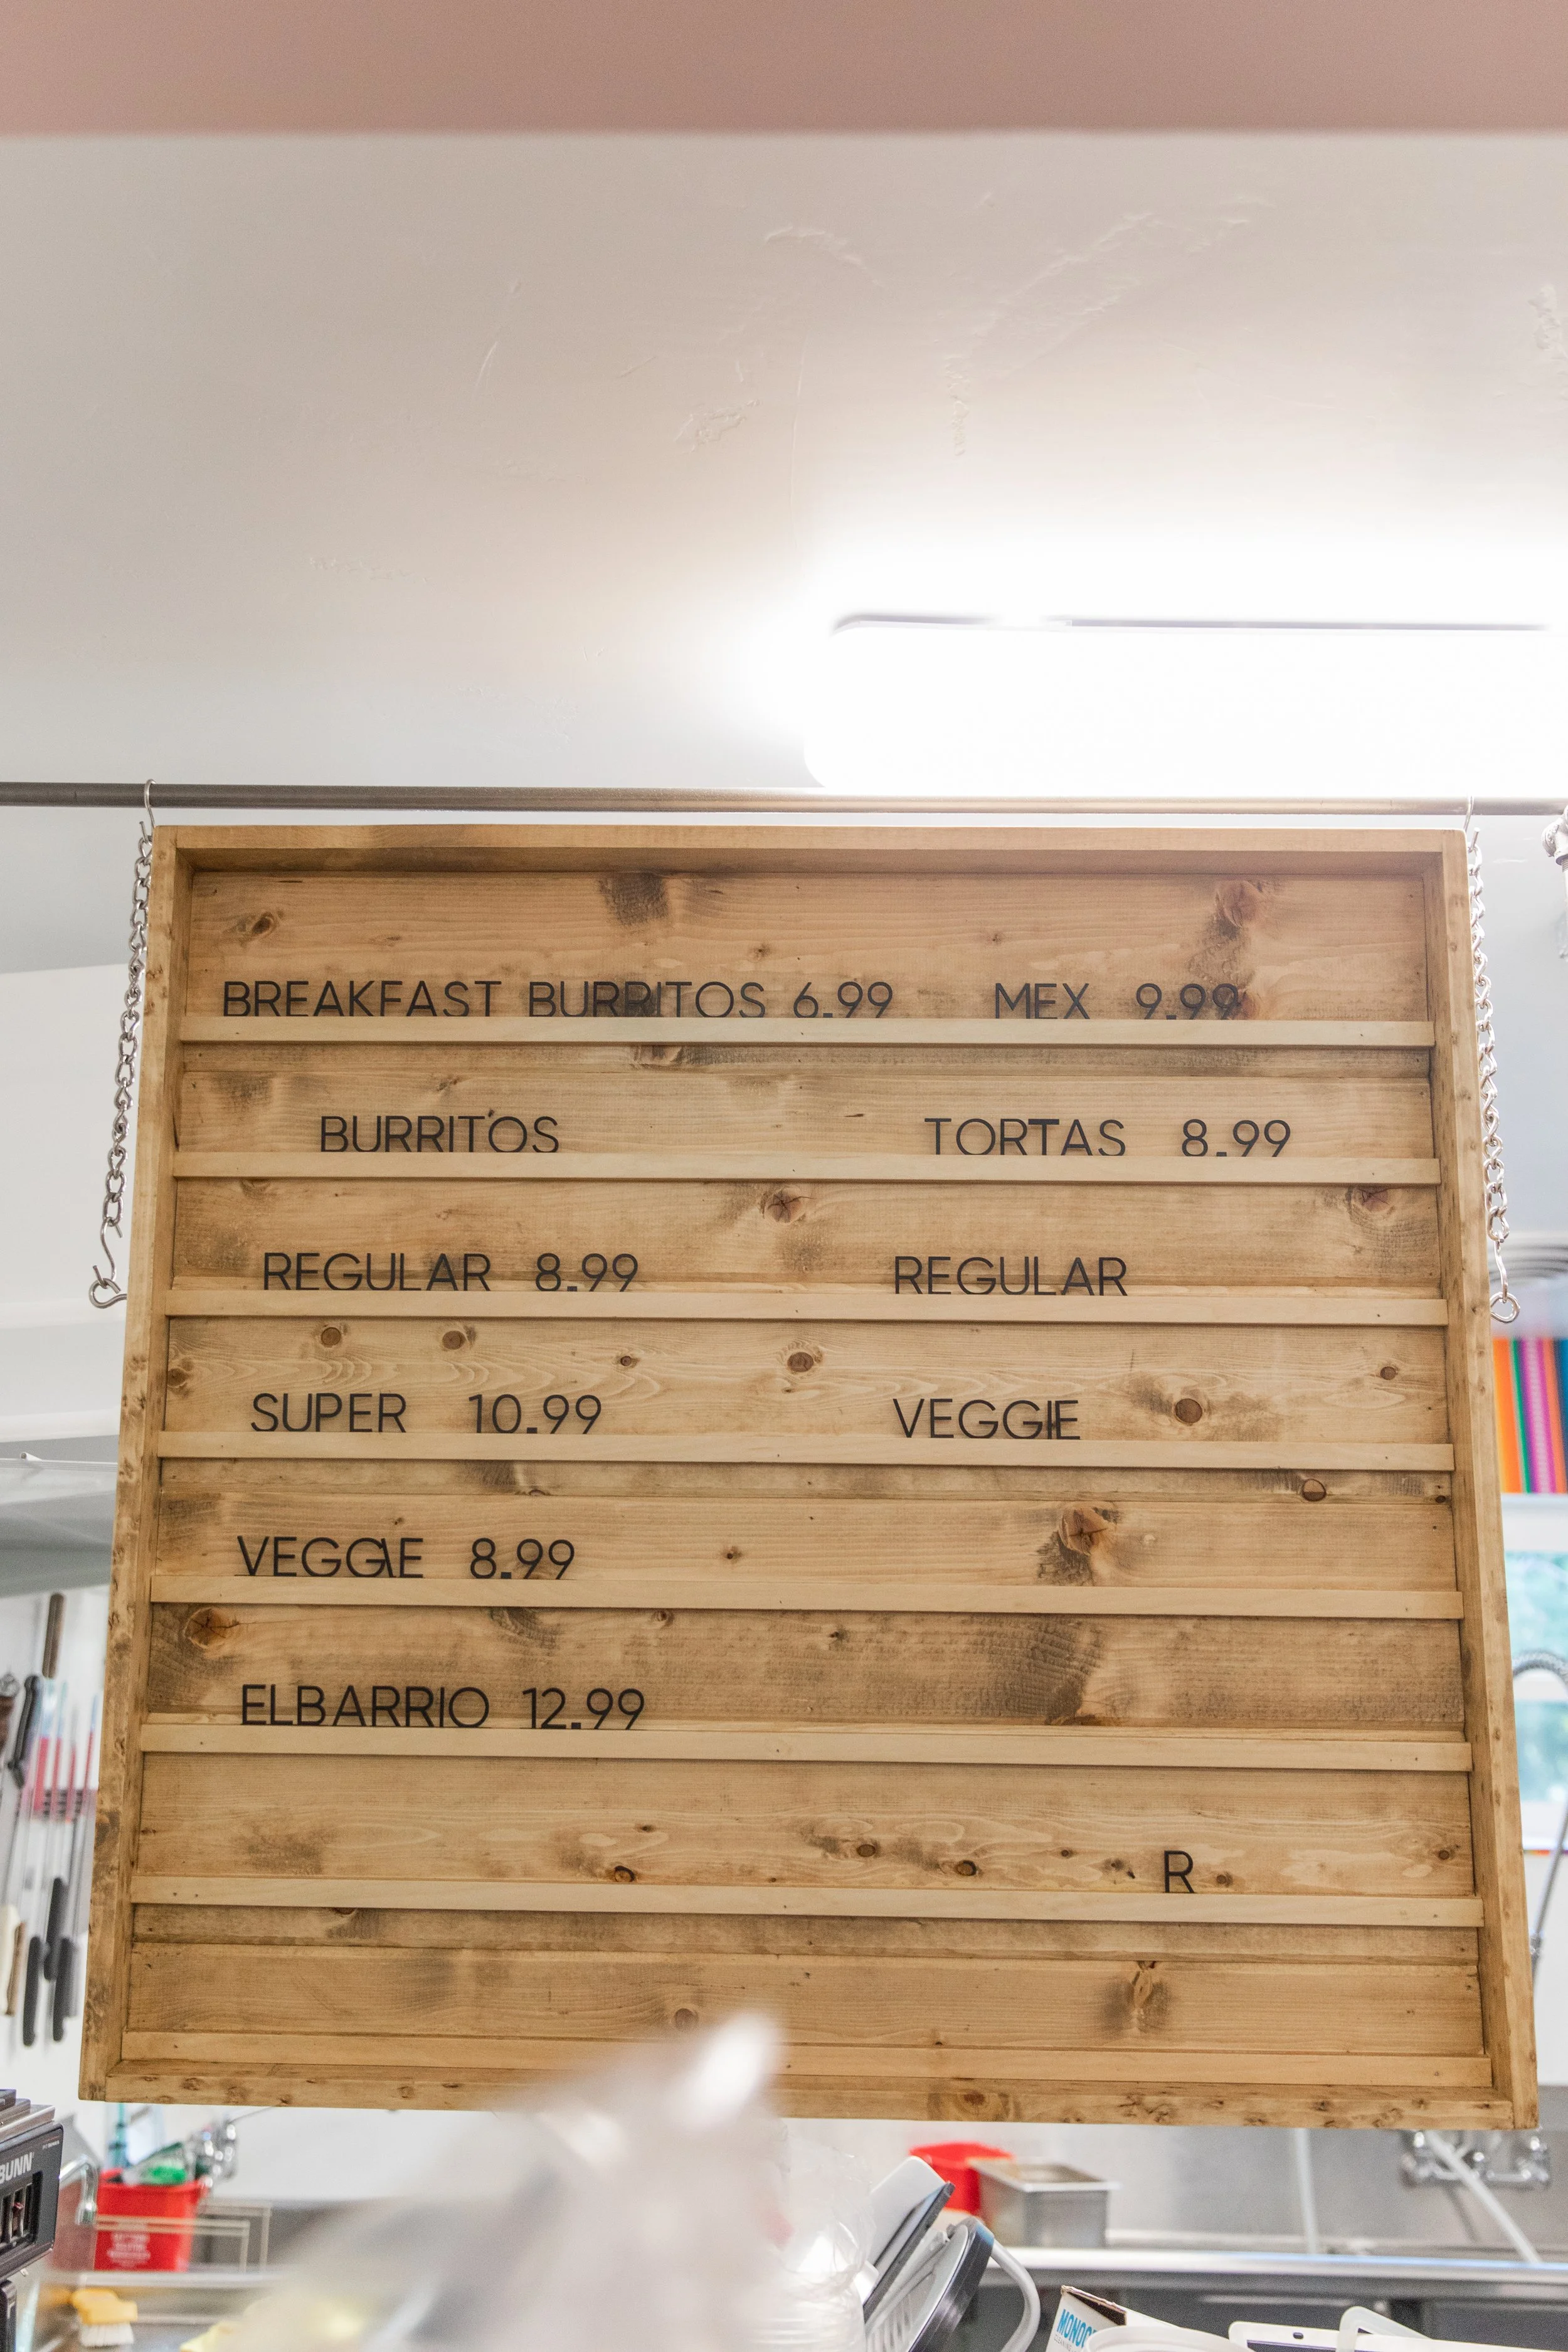 BREAKFAST BURRITOS 6.99 MEX 9.99
BURRITOS TORTAS 8.99
REGULAR 8.99 REGULAR
SUPER 10.99 VEGGIE
VEGGIE 8.99
ELBARRIO 12.99
R
BUNN